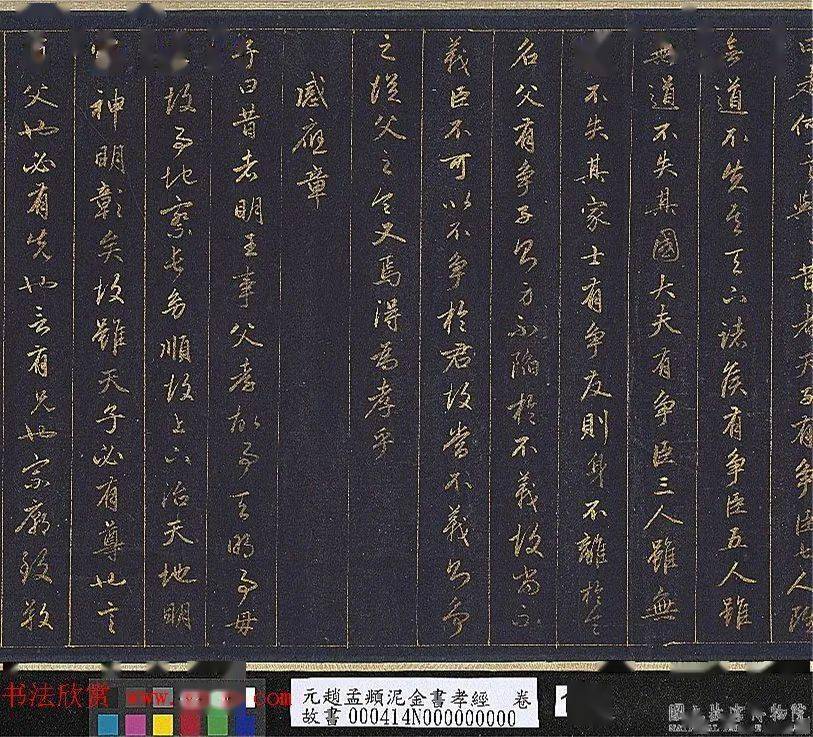 曰是何言與昔者天子有爭臣七人雖
無道不失其天下諸侯有爭臣五人雖
無道不失其國大夫有爭臣三人雖無
不失其家士有爭友則身不離於令
名父有爭子則身不陷於不義故當不
義臣不可以不爭於君故當不義則爭
之從父之令又焉得為孝乎
感應章
子曰昔者明王事父孝故事天明事母
故事地察長幼順故上下治天地明
神明彰矣故雖天子必有尊也言
父也必有先也言有兄也宗廟致敬
书法欣赏 www.
元趙孟頫泥金書孝經 卷
故書000414N000000000